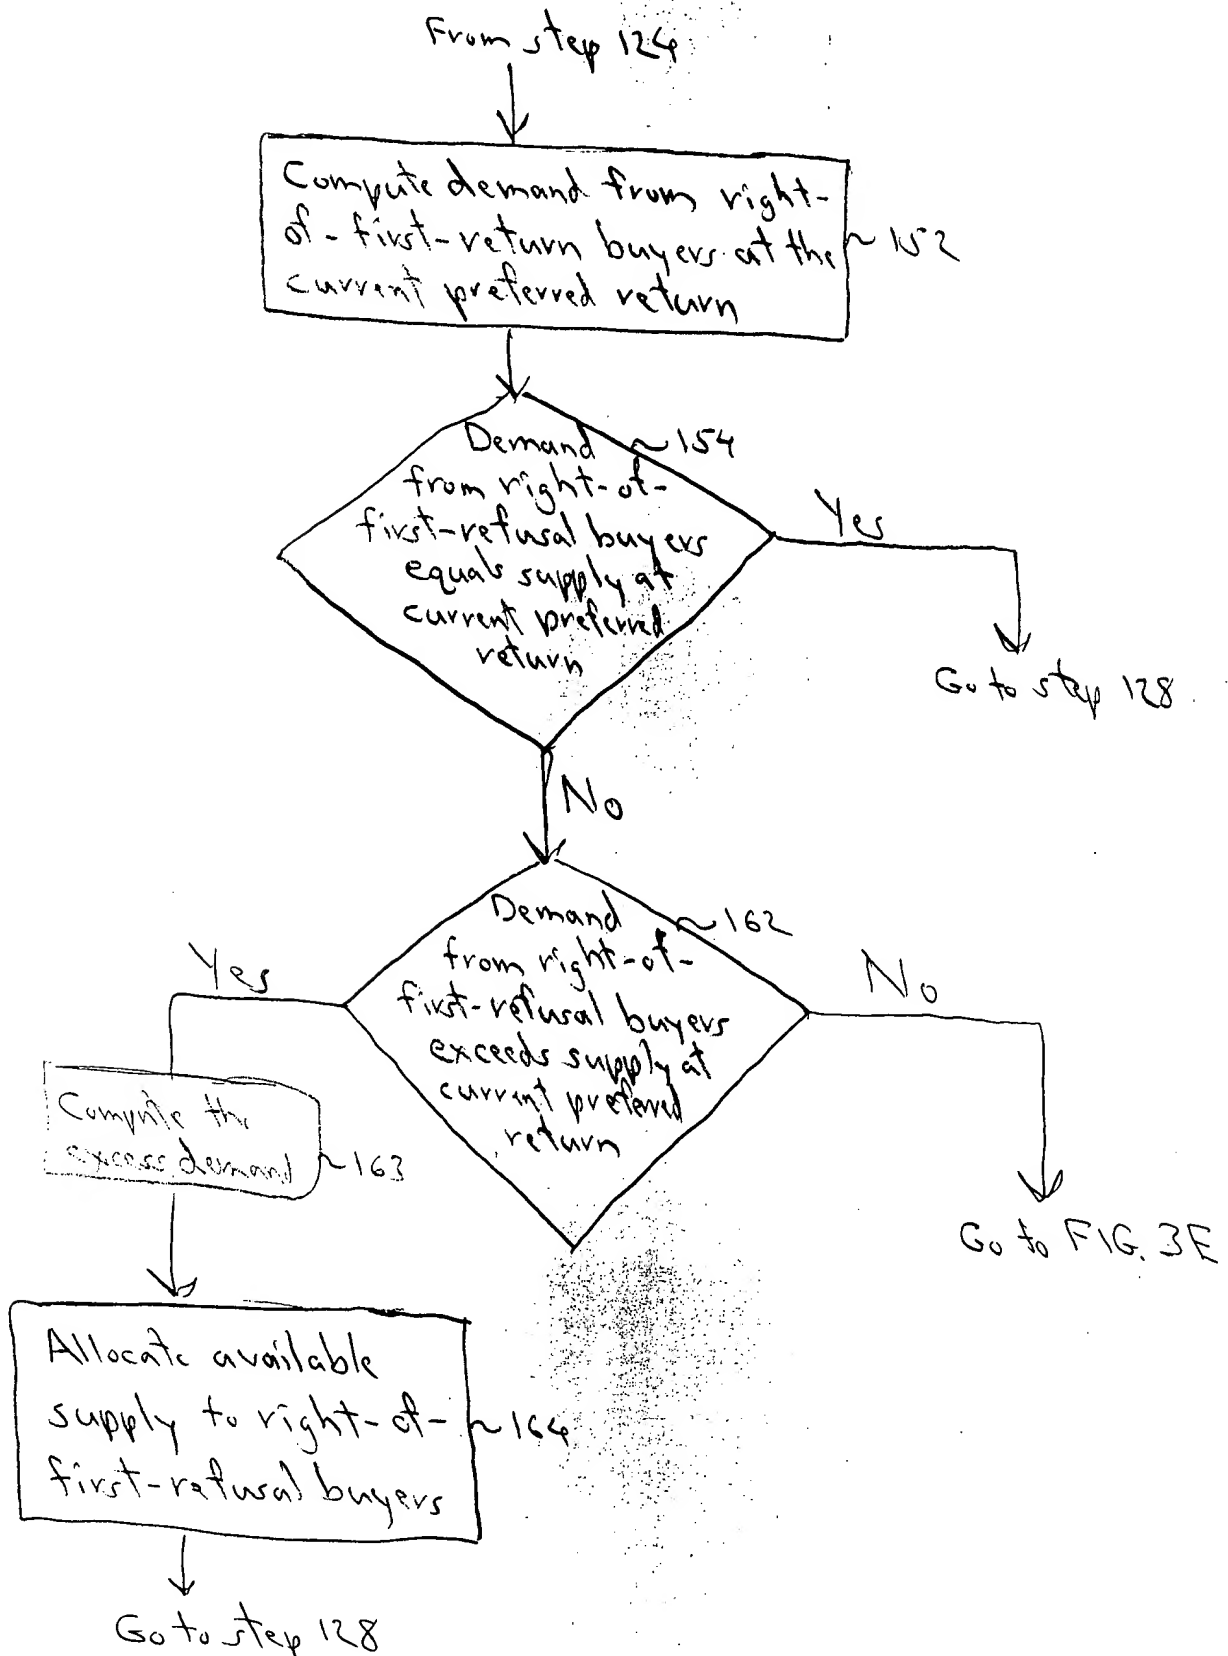 From step 124
Compute demand from right-
of-first-return buyers at the
current preferred return
~152
Demand
from right-of-
first-refusal buyers
equals supply at
current preferred
return
~154
Yes
Go to step 128
No
Demand
from right-of-
first-refusal buyers
exceeds supply at
current preferred
return
~162
Yes
No
Compute the
excess demand
~163
Go to FIG. 3E
Allocate available
supply to right-of-
first-refusal buyers
~164
Go to step 128